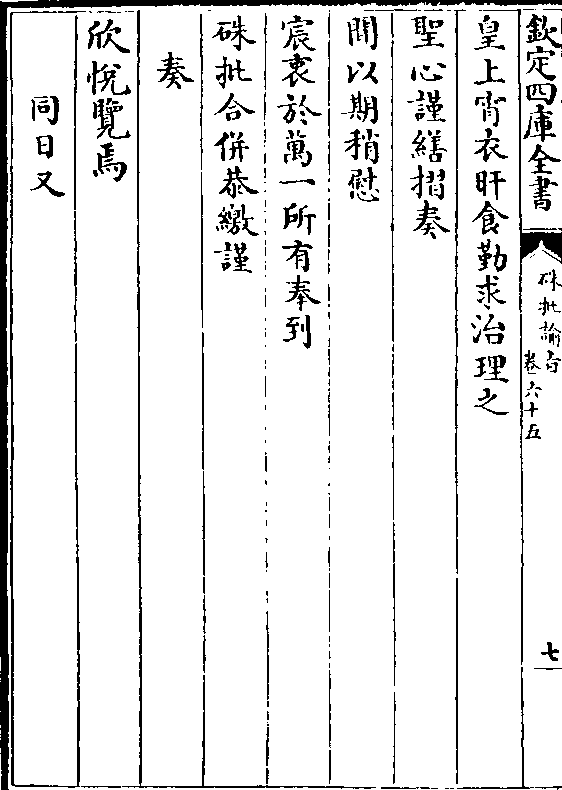 欽定四庫全書
硃批諭旨
卷六十五
七
皇上宵衣旰食勤求治理之
聖心謹繕摺奏
聞以期稍慰
宸衷於萬一所有奉到
硃批合併恭繳謹
奏
欣悅覽焉
同日又